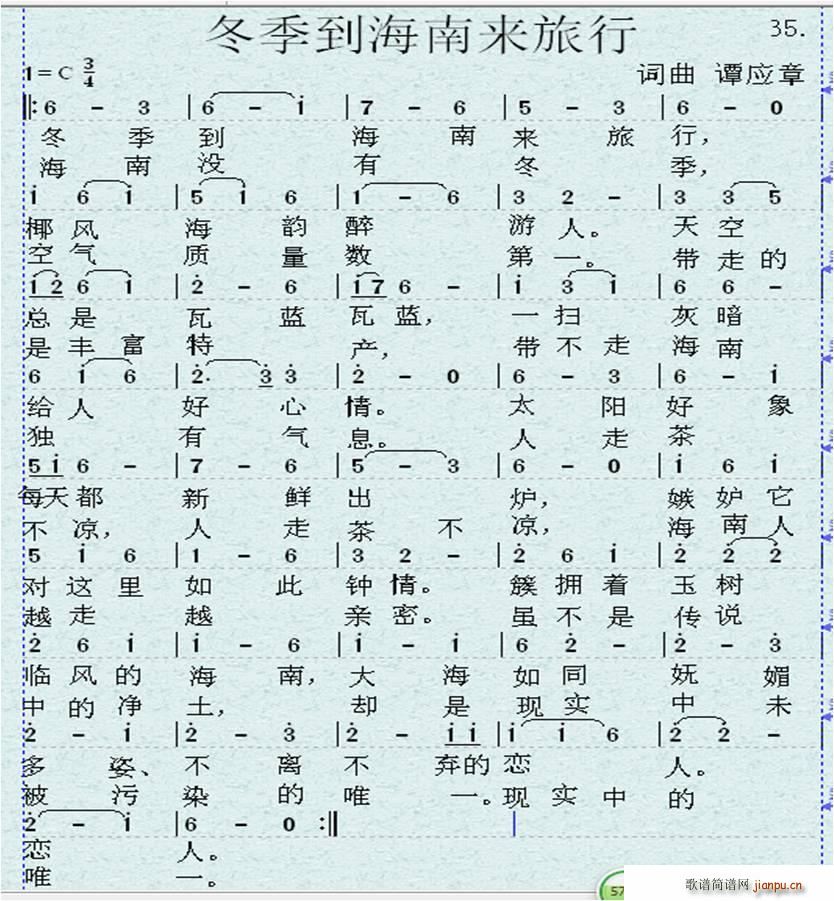 冬季到海南来旅行 35.
1=C 3/4 词曲 谭应章
‖: 6 - 3 | 6 - i | 7 - 6 | 5 - 3 | 6 - 0
冬 季 到 海 南 来 旅 行,
海 南 没 有 冬 季,
i 6 i | 5 i 6 | 1 - 6 | 3 2 - | 3 3 5
椰 风 海 韵 醉 游 人。 天 空
空 气 质 量 数 第 一。 带 走 的
i 2 6 i | 2 - 6 | i 7 6 - | i 3 i | 6 6 -
总 是 瓦 蓝 瓦 蓝, 一 扫 灰 暗
是 丰 富 特 产, 带 不 走 海 南
6 i 6 | 2. 3 3 | 2 - 0 | 6 - 3 | 6 - i
给 人 好 心 情。 太 阳 好 象
独 有 气 息。 人 走 茶
5 i 6 - | 7 - 6 | 5 - 3 | 6 - 0 | i 6 i
每 天 都 新 鲜 出 炉, 嫉 妒 它
不 凉, 人 走 茶 不 凉, 海 南 人
5 i 6 | 1 - 6 | 3 2 - | 2 6 i | 2 2 2
对 这 里 如 此 钟 情。 簇 拥 着 玉 树
越 走 越 亲 密。 虽 不 是 传 说
2 6 i | i - 6 | i - i | 6 2 - | 2 - 3
临 风 的 海 南, 大 海 如 同 妩 媚
中 的 净 土, 却 是 现 实 中 未
2 - i | 2 - 3 | 2 - i i | i i 6 | 2 2 -
多 姿、 不 离 不 弃 的 恋 人。
被 污 染 的 唯 一。 现 实 中 的
2 - i | 6 - 0 :‖
恋 人。
唯 一。
57
歌谱简谱网 jianpu.cn